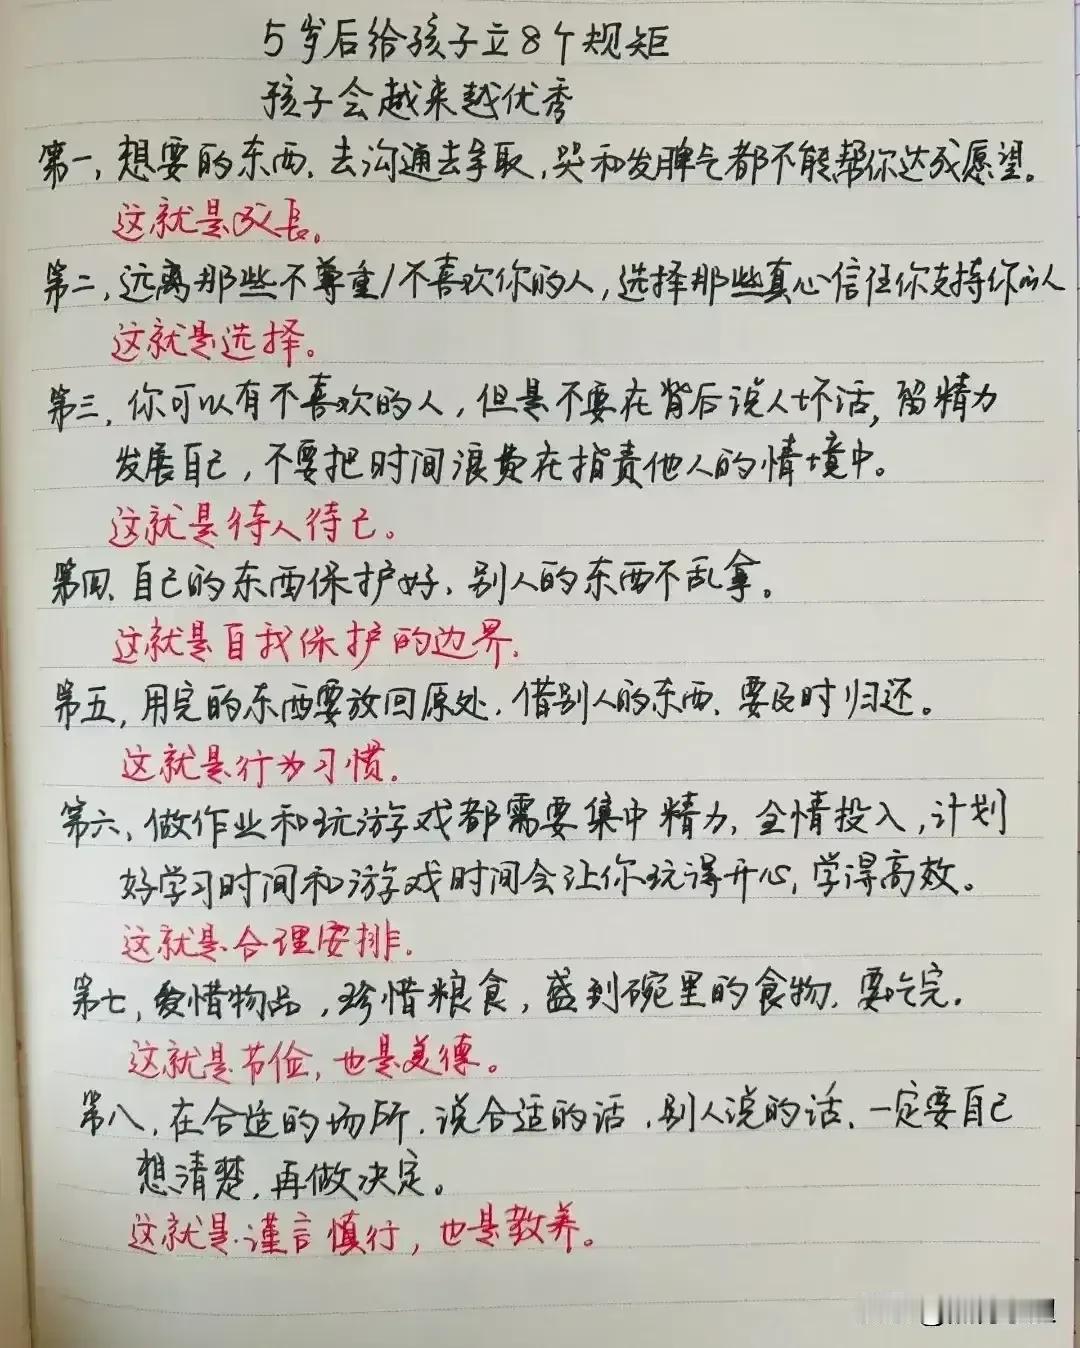 5岁后给孩子立8个规矩
孩子会越来越优秀
第一,想要的东西、去沟通去争取,哭和发脾气都不能帮你达成愿望。
这就是成长。
第二,远离那些不尊重/不喜欢你的人,选择那些真心信任你支持你的人
这就是选择。
第三,你可以有不喜欢的人,但是不要在背后说人坏话,留精力
发展自己,不要把时间浪费在指责他人的情境中。
这就是待人待己。
第四、自己的东西保护好、别人的东西不乱拿。
这就是自我保护的边界.
第五,用完的东西要放回原处.借别人的东西、要及时归还。
这就是行为习惯.
第六,做作业和玩游戏都需要集中精力,全情投入,计划
好学习时间和游戏时间会让你玩得开心,学得高效。
这就是合理安排.
第七,爱惜物品,珍惜粮食,盛到碗里的食物、要吃完.
这就是节俭,也是美德。
第八,在合适的场所.说合适的话,别人说的话、一定要自己
想清楚,再做决定。
这就是谨言慎行,也是教养。